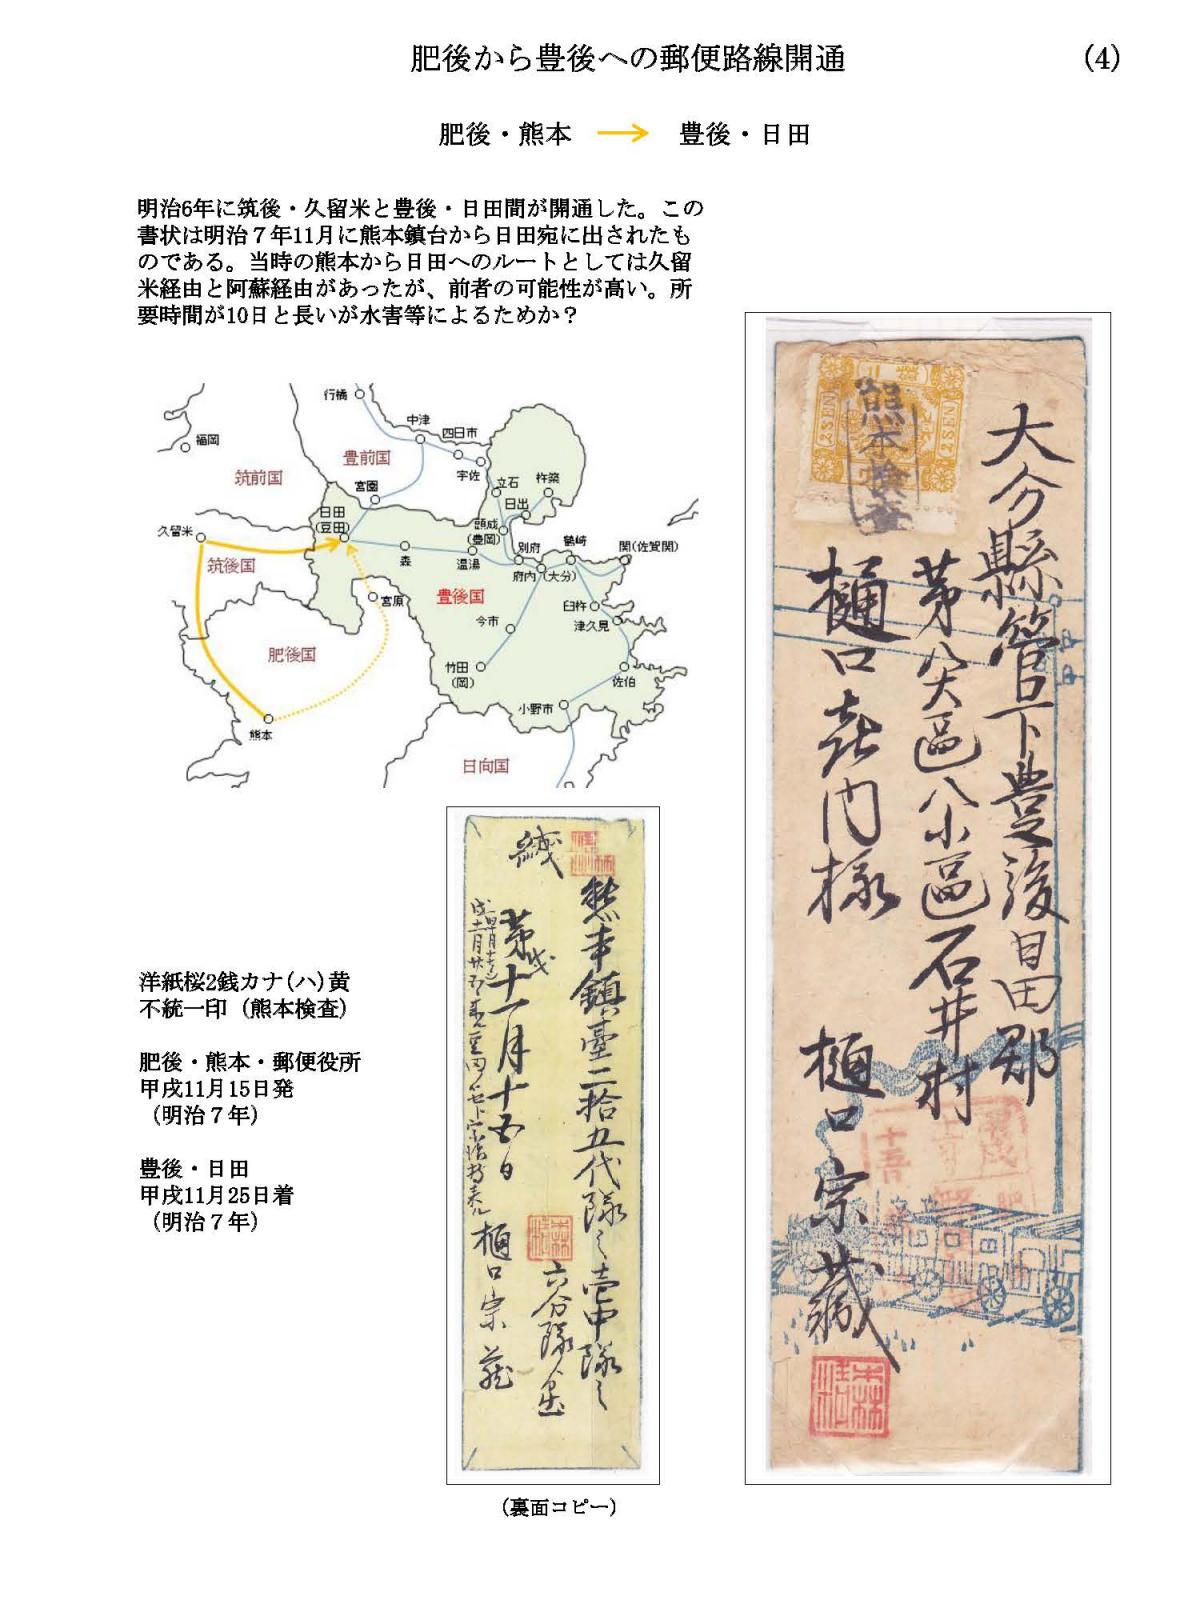 肥後から豊後への郵便路線開通
(4)
肥後・熊本　→　豊後・日田
明治6年に筑後・久留米と豊後・日田間が開通した。この
書状は明治７年11月に熊本鎮台から日田宛に出されたも
のである。当時の熊本から日田へのルートとしては久留
米経由と阿蘇経由があったが、前者の可能性が高い。所
要時間が10日と長いが水害等によるためか？
行橋
中津
四日市
宇佐
福岡
豊前国
筑前国
宮園
立石
杵築
日出
日田
(豆田)
頭成
(豊岡)
久留米
森
温湯
別府
鶴崎
関(佐賀関)
府内
(大分)
筑後国
宮原
豊後国
臼杵
津久見
今市
肥後国
竹田
(岡)
佐伯
小野市
熊本
日向国
洋紙桜2銭カナ(ハ)黄
不統一印（熊本検査）
肥後・熊本・郵便役所
甲戌11月15日発
（明治７年）
豊後・日田
甲戌11月25日着
（明治７年）
緘
熊本鎮臺二拾五代隊之壱中隊之
六分隊
第十一月十五日
樋口宗蔵
（裏面コピー）
2 SEN
2 SEN
熊本検査
大分縣管下豊後日田郡
第八大區八小區石井村
樋口㐂内様
樋口宗蔵